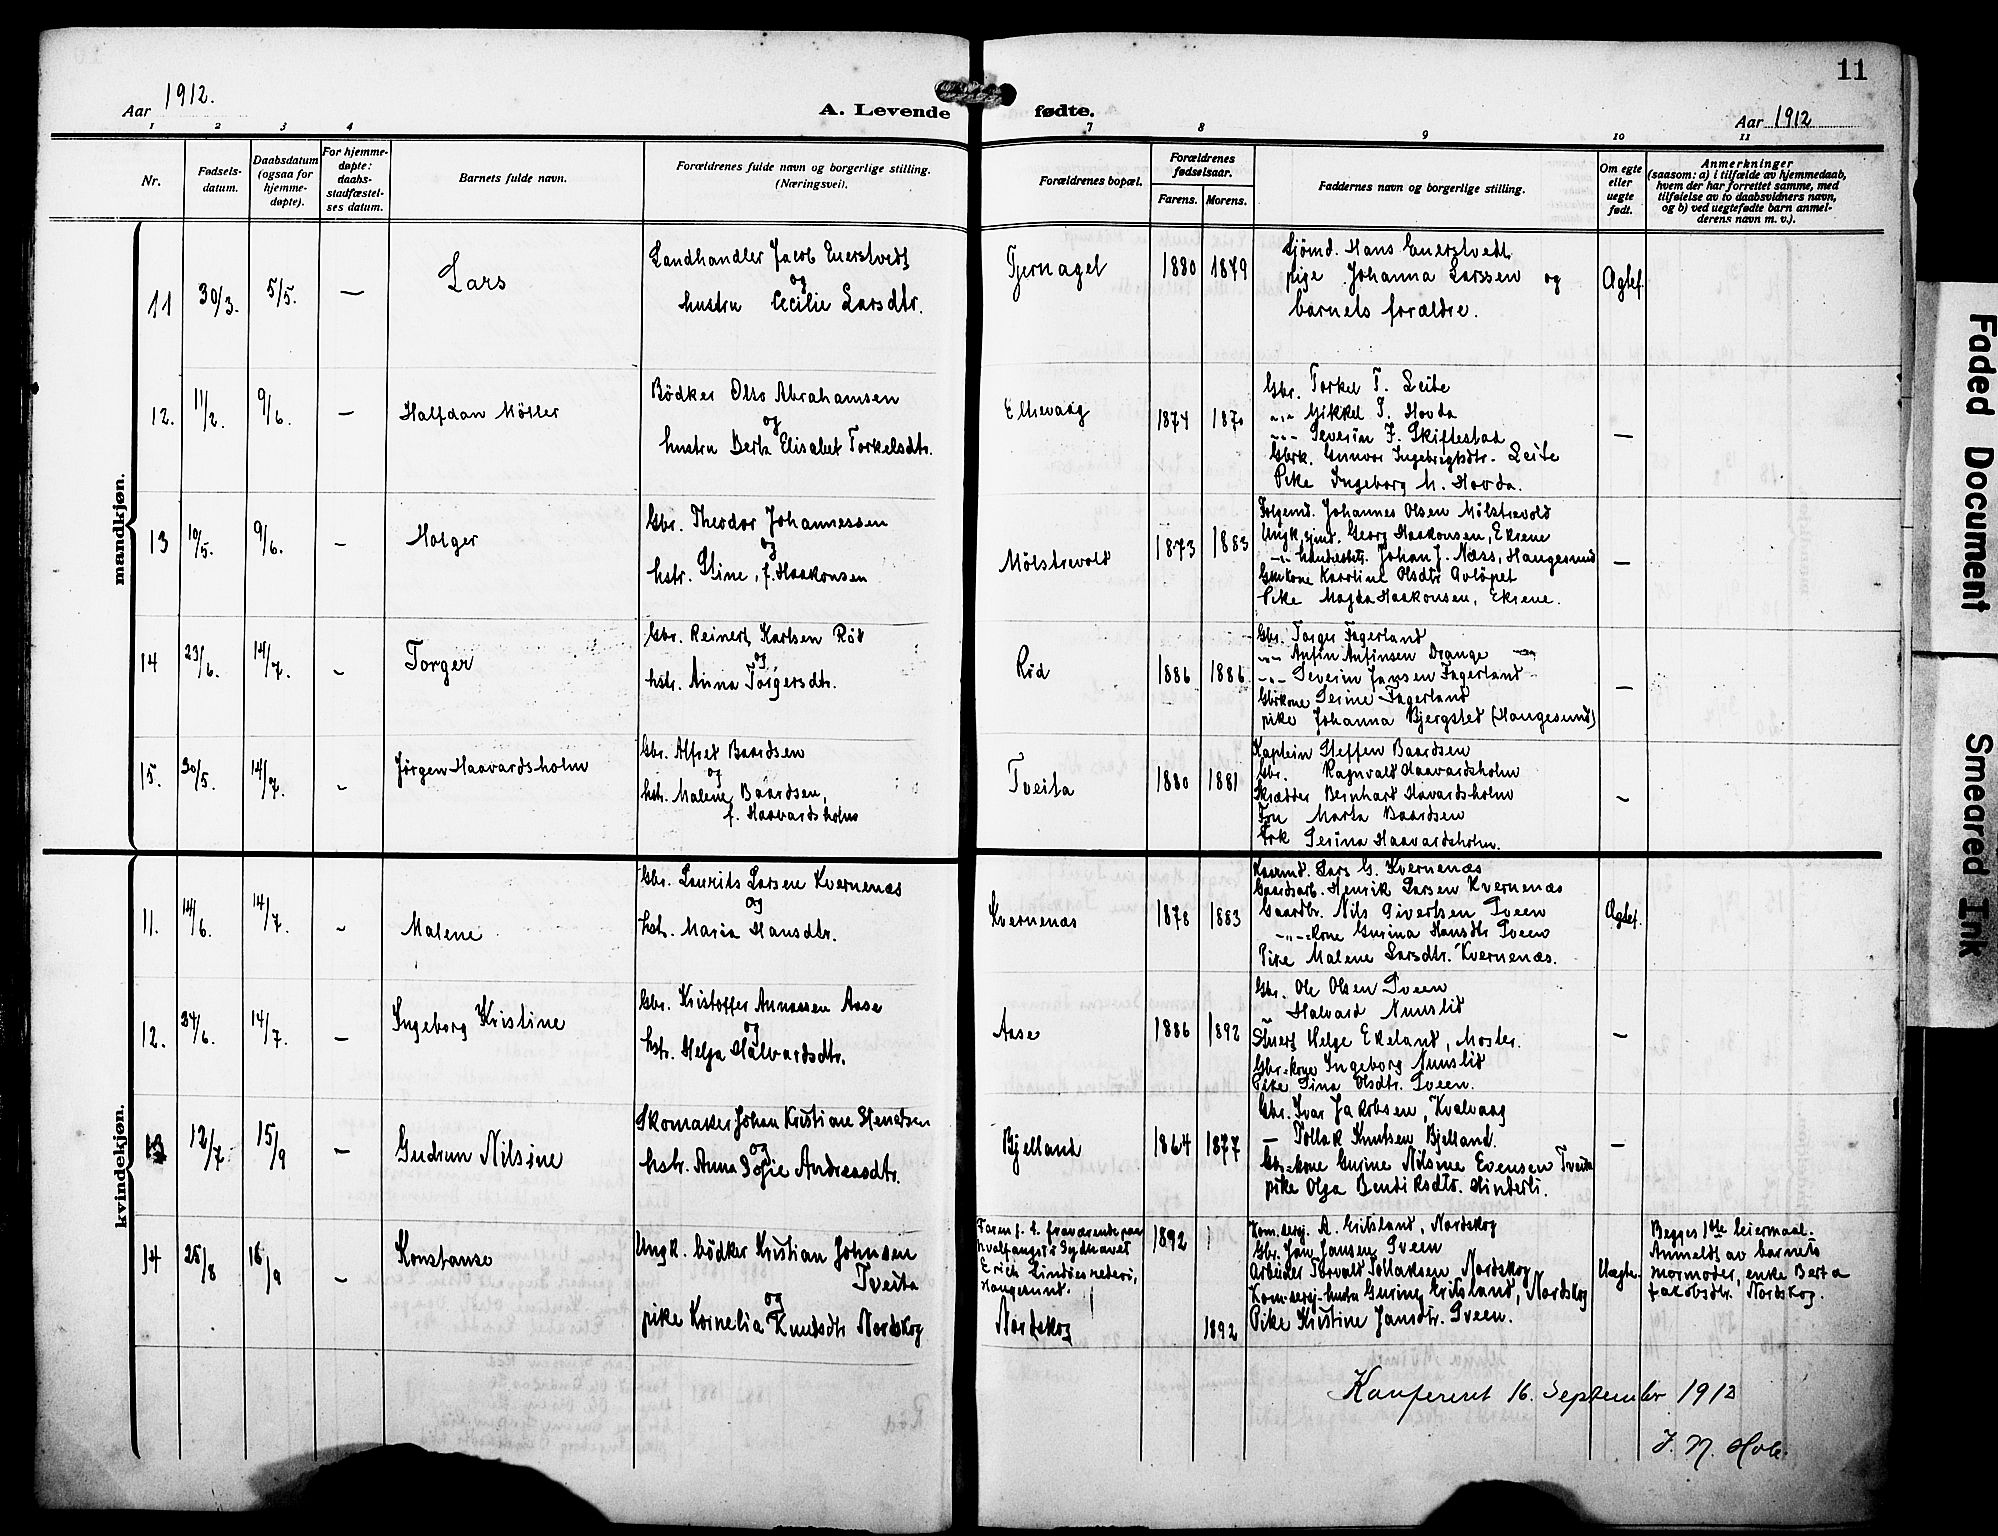 11
Aar 1912.
A. Levende fødte.
Aar 1912
1 2 3 4 7 8 9 10 11
Nr.
Fødsels-
datum.
Daabsdatum
(ogsaa for
hjemme-
døpte).
For hjemme-
døpte:
daabs-
stadfæstel-
ses datum.
Barnets fulde navn.
Forældrenes fulde navn og borgerlige stilling.
(Næringsvei).
Forældrenes bopæl.
Forældrenes
fødselsaar.
Farens. Morens.
Faddernes navn og borgerlige stilling.
Om egte
eller
uegte
født.
Anmerkninger
(saasom: a) i tilfælde av hjemmedaab,
hvem der har forrettet samme, med
tilføielse av to daabsvidners navn,
og b) ved uegtefødte barn anmel-
derens navn m. v.).
mandkjøn.
11 30/3. 5/5. — Lars
Landhandler Jacob Enerstvedt
og
hustru Cecilie Larsdtr.
Tjernagel 1880 1879
Sjömd. Hans Enerstvedt
pige Johanna Larssen og
barnets forældre.
Ægtef.
12. 11/2. 9/6. — Halfdan Möller
Bödker Olso Abrahamsen
og
hustru Berta Elisabet Torkelsdtr.
Ellievaag 1874 1870
Gbr. Torkel T. Leite
-"- Mikkel T. Hovda
-"- Severin J. Skiftestad
Gbrk. Gunvor Ingebregtsdtr. Leite
Pike Ingeborg M. Hovda.
—
13 10/5. 9/6. — Holger
Gbr. Theodor Johannessen
og
hstr. Stine, f. Haakonsen
Mölstrevold 1873 1883
Folgemd. Johannes Olsen Mölstrevold
Ungk. sjmd. Georg Haakonsen, Ekrene
-"- handelsbetr. Johan J. Næss, Haugesund
Gbrkone Karoline Olsdtr
Pike Magda Haakonsen, Ekrene.
—
14 23/6. 14/7. — Torger
Gbr. Reinert Karlsen Röd
og
hstr. Anna Torgersdtr.
Röd 1886 1886
Gbr. Torger Fagerland
-"- Anfin Anfinsen Drange
-"- Severin Jansen Fagerland
Gbrkone Serine Fagerland
pike Johanna Bjergsted (Haugesund)
—
15. 30/5. 14/7. — Jörgen Haavardsholm
Gbr. Alfred Baardsen
og
hstr. Malene Baardsen,
f. Haavardsholm
Tveita 1880 1881
Kaptein Steffen Baardsen
Gbr. Ragnvald Haavardsholm
Skrædder Bernhard Havardsholm
Fru Marta Baardsen
Frk Serina Haavardsholm.
—
kvindekjøn.
11. 14/6. 14/7. — Malene
Gbr. Laurits Larsen Kvernenæs
og
hstr. Maria Hansdtr.
Kvernenæs 1878 1883
Kaarmd. Lars G. Kvernenæs
Gaardsarb. Henrik Larsen Kvernenæs
Gaardbr. Nils Sivertsen Sveen
-"- -kone Gurina Hansdtr Sveen
Pike Malene Larsdtr. Kvernenæs.
Ægtef.
12. 24/6. 14/7. — Ingeborg Kristine
Gbr. Kristoffer Annassen Aase
og
hstr. Helga Halvardsdtr.
Aase 1886 1892
Gbr. Ole Olsen Sveen
— Halvard Nunslid
Stuert Helge Ekeland, Moster.
Gbr-kone Ingeborg Nunslid
Pike Sina Olsdtr. Sveen.
—
13 12/7 15/9 — Gudrun Nilsine
Skomaker Johan Kristian Stenersen
og
hstr. Anna Sofie Andreasdtr.
Bjelland 1864 1877
Gbr. Ivar Jakobsen, Kvalvaag
— Tollak Knutsen Bjelland.
Gbr-kone Gurine Nilsine Evensen Tveita
pike Olga Bendiksdtr. Hinderli.
—
14 25/8 16/9 — Konstanse
Ungk. bödker Kristian Johnsen
Tveita
og
pike Kornelia Knudsdtr Nordskog
Faren f. t. fraværende paa
hvalfangst i Sydhavet
Erich Lindöes rederi,
Haugesund.
Nordskog
1892
1892
Kom.sergj. A. Eritsland, Nordskog
Gbr. Jan Jansen Sveen
Arbeider Torvald Tollaksen Nordskog
Kom.sergj-hustru Gurine Eritsland, Nordskog
Pike Kristine Jansdtr. Sveen.
Uægte.
Begges 1ste leiermaal.
Anmeldt av barnets
mormoder, enke Berta
Jakobsdtr. Nordskog.
Konfereret 16. September 1912
J. N. Hole.
Faded Document
Smeared Ink